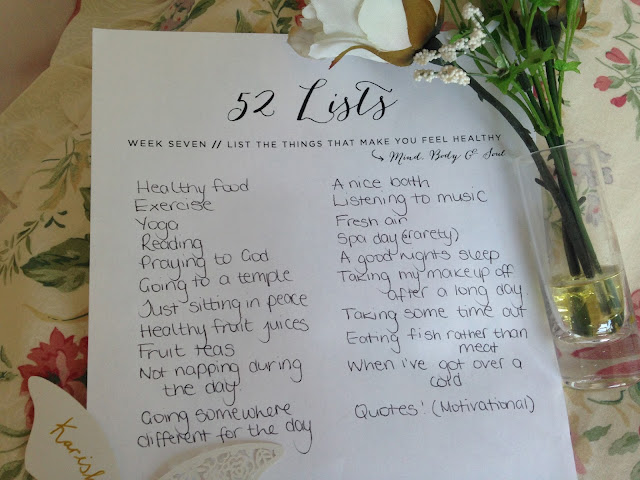 52 Lists
WEEK SEVEN // LIST THE THINGS THAT MAKE YOU FEEL HEALTHY
Mind, Body & Soul
Healthy food
Exercise
Yoga
Reading
Praying to God
Going to a temple
Just sitting in peace
Healthy fruit juices
Fruit teas
Not napping during
the day
Going somewhere
different for the day
A nice bath
Listening to music
Fresh air
Spa day (rarety)
A good nights sleep
Taking my makeup off
after a long day
Taking some time out
Eating fish rather than
meat
When i've got over a
cold
Quotes! (Motivational)
Karish